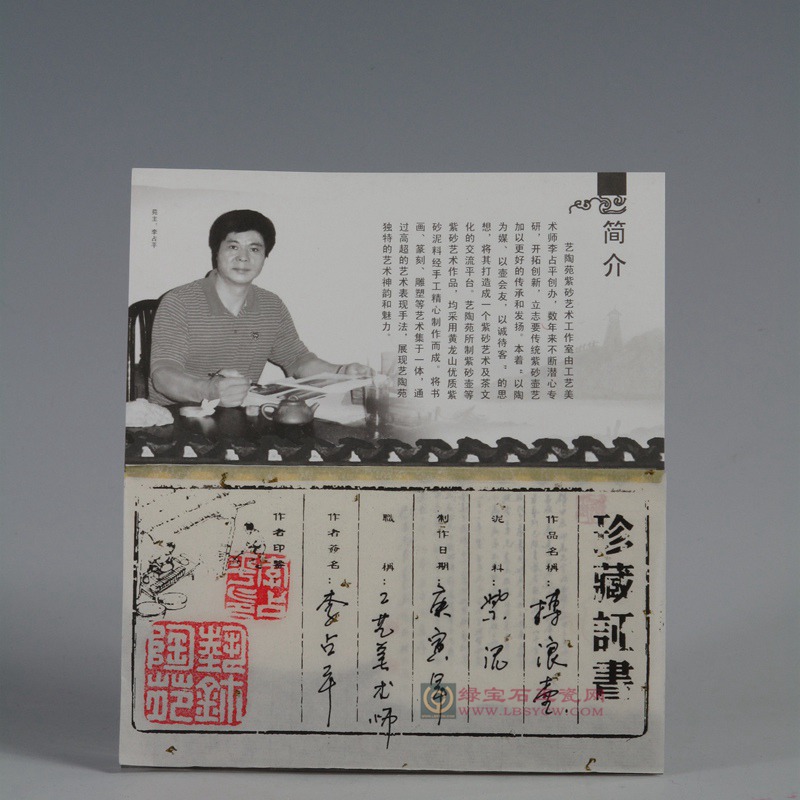 简介
艺陶苑紫砂艺术工作室由工艺美
术师李占平创办，数年来不断潜心专
研，开拓创新，立志要传统紫砂壶艺
加以更好的传承和发扬。本着“以陶
为媒、以壶会友，以诚待客”的思
想，将其打造成一个紫砂艺术及茶文
化的交流平台。艺陶苑所制紫砂壶等
紫砂艺术作品，均采用黄龙山优质紫
砂泥料经手工精心制作而成。将书
画、篆刻、雕塑等艺术集于一体，通
过高超的艺术表现手法，展现艺陶苑
独特的艺术神韵和魅力。
苑主：李占平
珍藏証書
作品名稱：搏浪壶
泥料：紫泥
制作日期：庚寅年
職稱：工艺美术师
作者簽名：李占平
作者印鉴
绿宝石陶瓷网
WWW.LBSYCW.COM